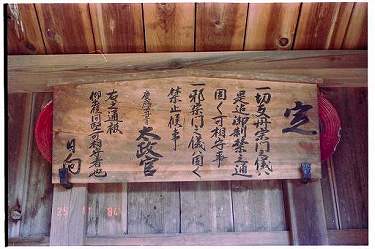 定
一切支丹宗門之儀ハ
是迄御制禁之通
固く可相守事
一邪宗門之儀ハ固く
禁止候事
慶應四年三月
太政官
右之通被
仰出候間可相守者也
日向
29 11 '84